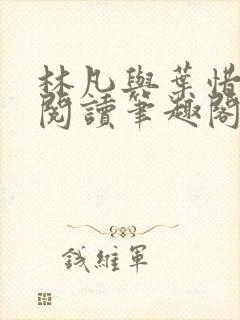 林凡與葉惜
閱讀筆趣閣
錢維軍